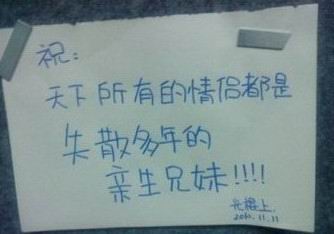 祝:
天下所有的情侣都是
失散多年的
亲生兄妹!!!!
光棍上.
2010.11.11